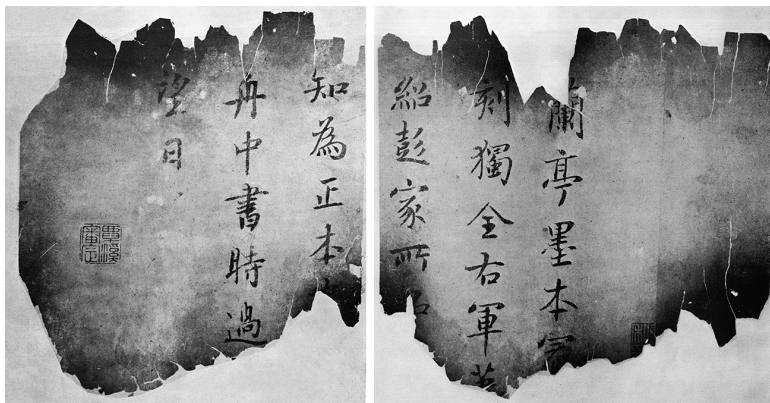 蘭亭墨本
刻獨全右軍
紹彭家所
知為正本
舟中書時過
望日
覃溪審定